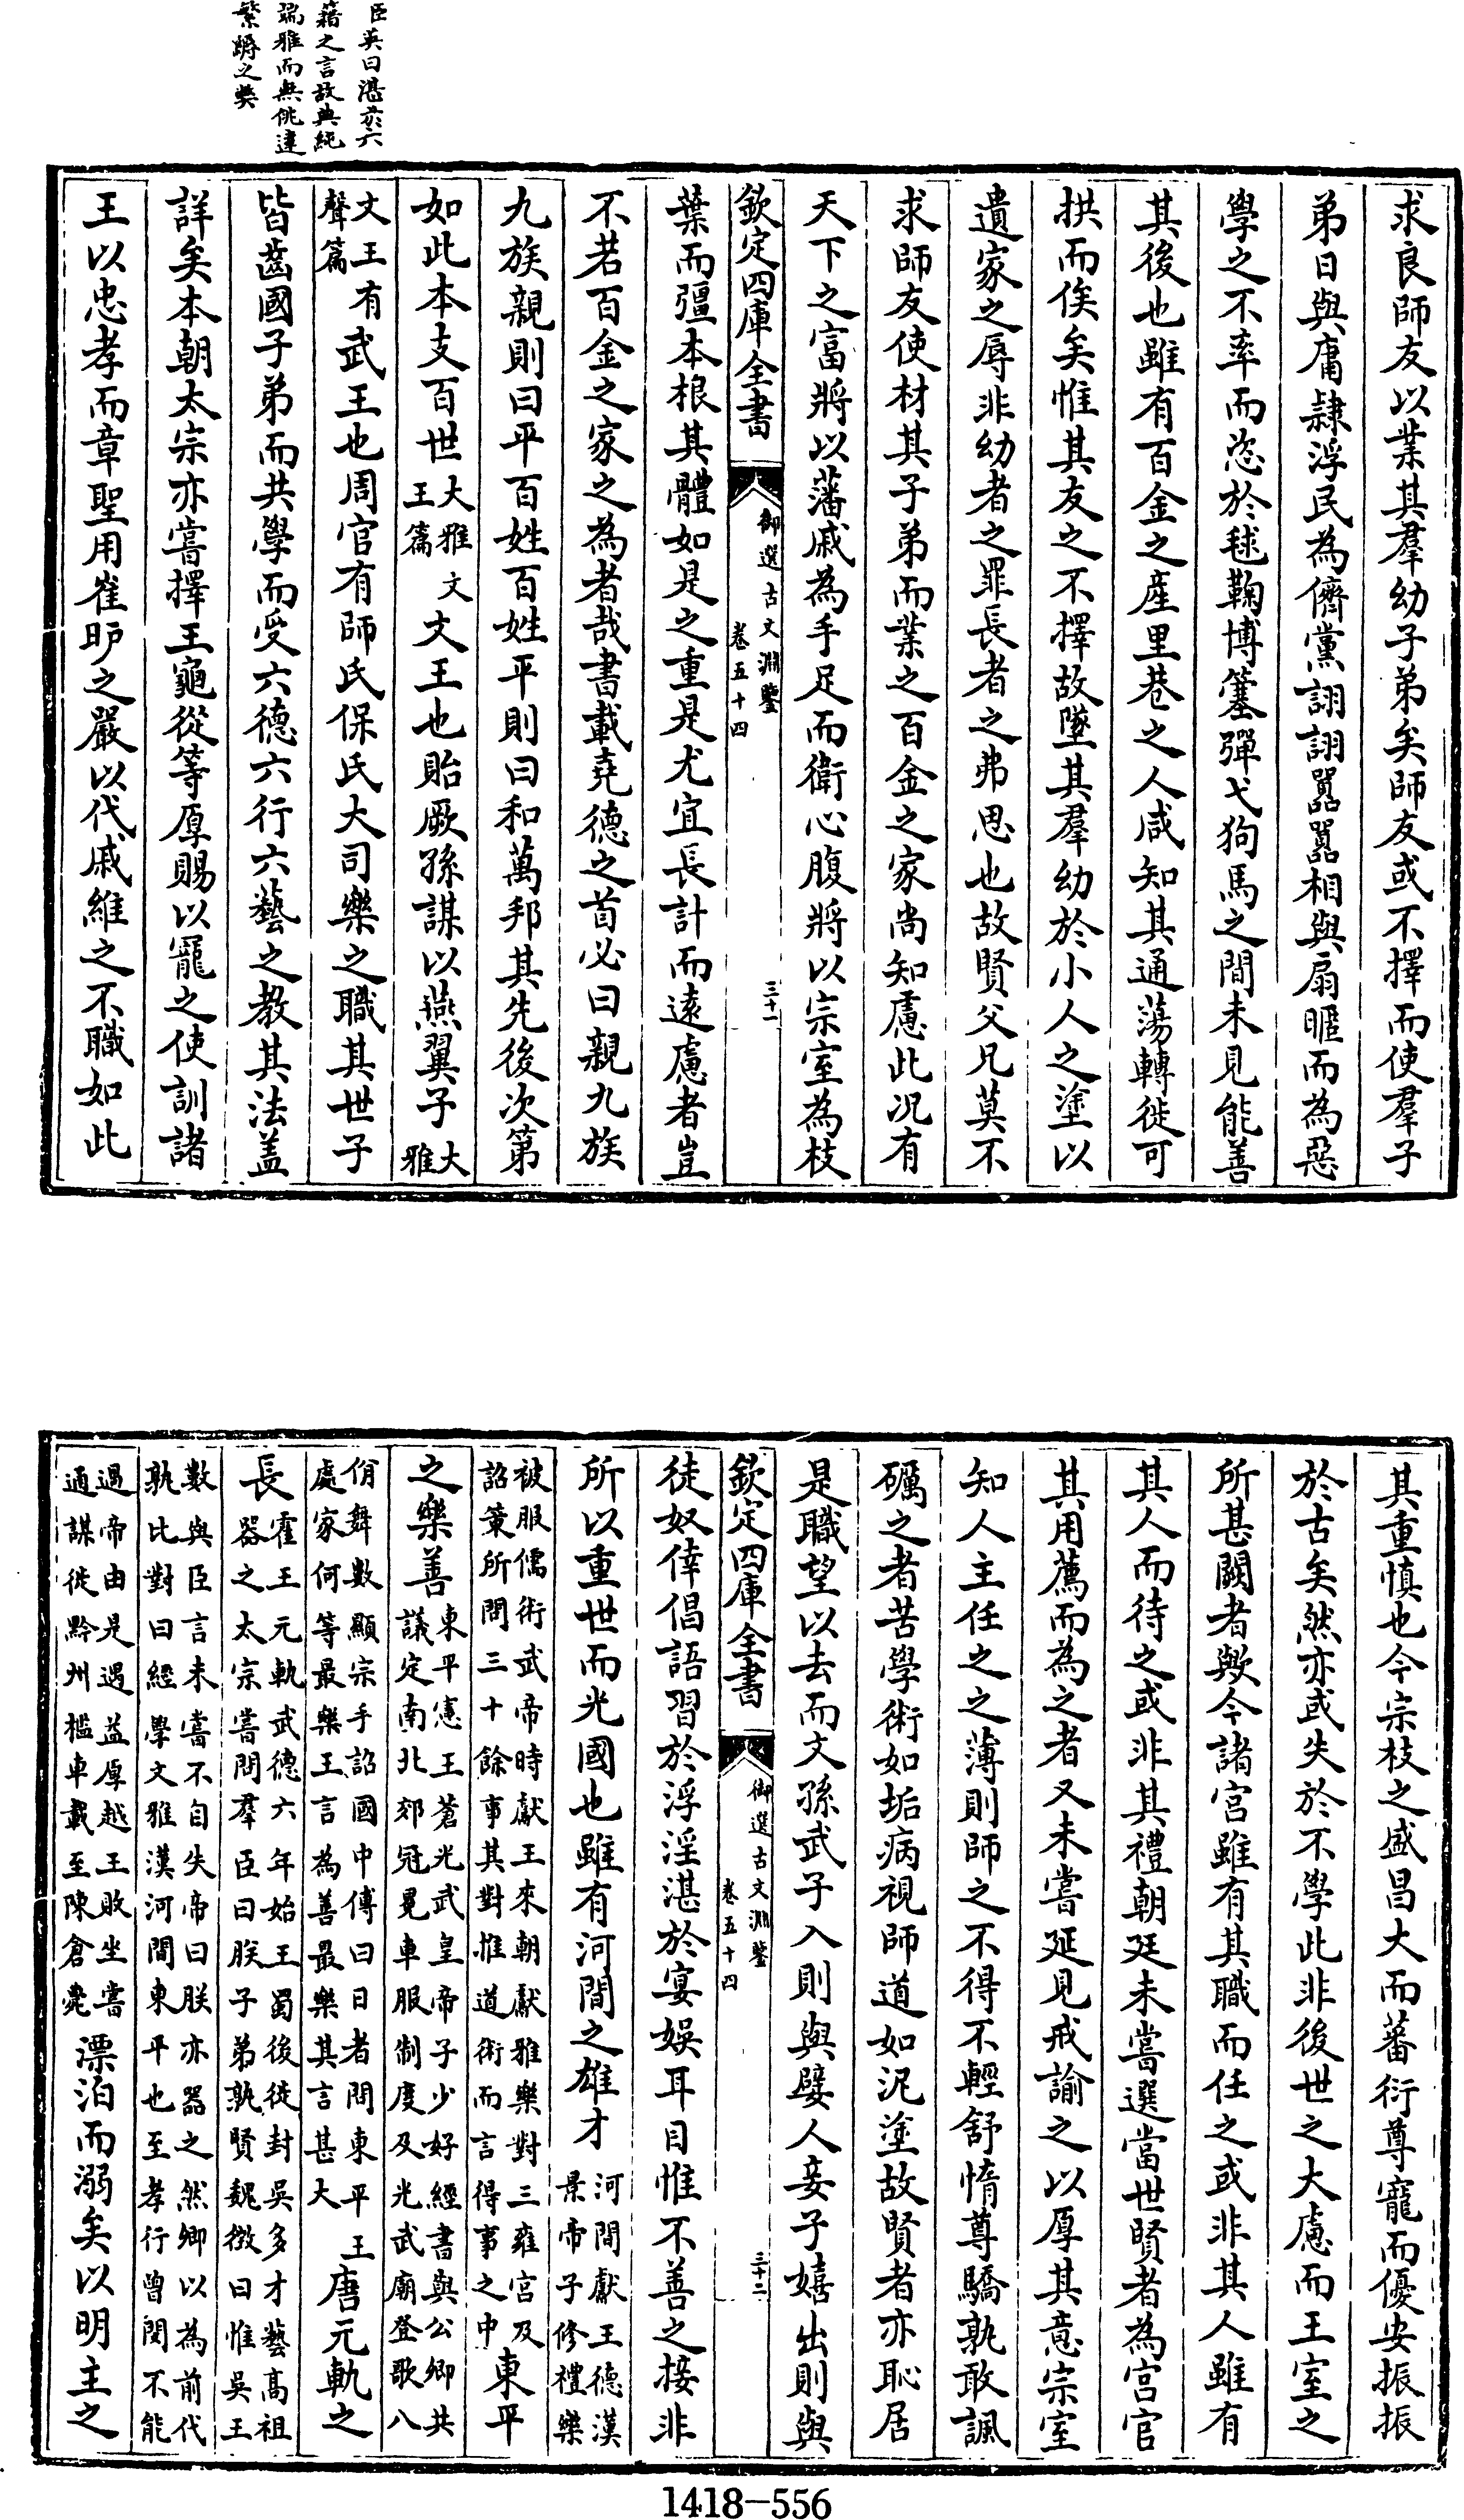 臣英曰湛於六
籍之言故典純
端雅而無佻達
繁縟之獘
求良師友以業其羣幼子弟矣師友或不擇而使羣子
弟日與庸隷浮民為儕黨詡詡嚚嚚相與扇暱而為惡
學之不率而恣於毬鞠博簺彈弋狗馬之間未見能善
其後也雖有百金之産里巷之人咸知其通蕩轉徙可
拱而俟矣惟其友之不擇故墜其羣幼於小人之塗以
遺家之辱非幼者之罪長者之弗思也故賢父兄莫不
求師友使材其子弟而業之百金之家尚知慮此况有
天下之富將以藩戚為手足而衛心腹將以宗室為枝
欽定四庫全書
御選古文淵鑒
卷五十四
三十一
葉而彊本根其體如是之重是尤宜長計而遠慮者豈
不若百金之家之為者哉書載堯德之首必曰親九族
九族親則曰平百姓百姓平則曰和萬邦其先後次第
如此本支百世大雅文
王篇文王也貽厥孫謀以燕翼子大
雅
文王有
聲篇武王也周官有師氏保氏大司樂之職其世子
皆齒國子弟而共學而受六德六行六藝之教其法盖
詳矣本朝太宗亦嘗擇王龜從等厚賜以寵之使訓諸
王以忠孝而章聖用崔昈之嚴以代戚維之不職如此
其重慎也今宗枝之盛昌大而蕃衍尊寵而優安振振
於古矣然亦或失於不學此非後世之大慮而王室之
所甚闕者歟今諸宫雖有其職而任之或非其人雖有
其人而待之或非其禮朝廷未嘗選當世賢者為宫官
其用薦而為之者又未嘗延見戒諭之以厚其意宗室
知人主任之之薄則師之不得不輕舒惰尊驕孰敢諷
礪之者苦學術如垢病視師道如泥塗故賢者亦恥居
是職望以去而文孫武子入則與嬖人妾子嬉出則與
欽定四庫全書
御選古文淵鑒
卷五十四
三十二
徒奴倖倡語習於浮淫湛於宴娛耳目惟不善之接非
所以重世而光國也雖有河間之雄才河間獻王德漢
景帝子修禮樂
被服儒術武帝時獻王來朝獻雅樂對三雍宫及
詔策所問三十餘事其對惟道術而言得事之中東平
之樂善東平憲王蒼光武皇帝子少好經書與公卿共
議定南北郊冠冕車服制度及光武廟登歌八
佾舞數顯宗手詔國中傅曰日者問東平王
處家何等最樂王言為善最樂其言甚大唐元軌之
長霍王元軌武德六年始王蜀後徙封吳多才藝高祖
器之太宗嘗問羣臣曰朕子弟孰賢魏徵曰惟吳王
數與臣言未嘗不自失帝曰朕亦器之然卿以為前代
孰比對曰經學文雅漢河間東平也至孝行曾閔不能
過帝由是遇益厚越王敗坐嘗
通謀徙黔州檻車載至陳倉薨漂泊而溺矣以明主之
1418-556